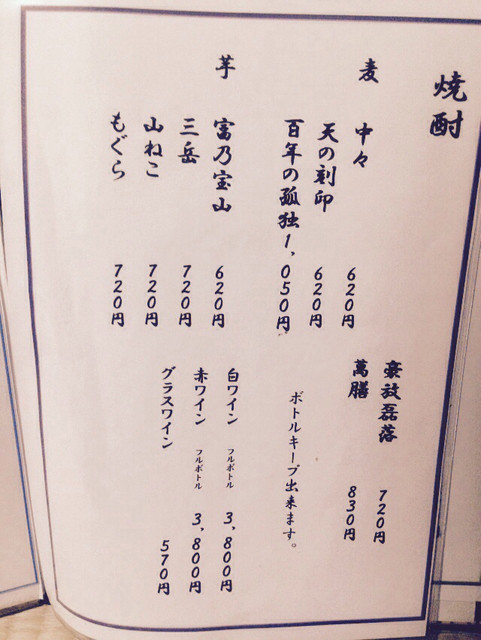 焼酎
麦
中々 620円
天の刻印 620円
百年の孤独 1,050円
芋
富乃宝山 620円
三岳 720円
山ねこ 720円
もぐら 720円
豪放磊落 720円
萬膳 830円
ボトルキープ出来ます。
白ワイン フルボトル 3,800円
赤ワイン フルボトル 3,800円
グラスワイン 570円